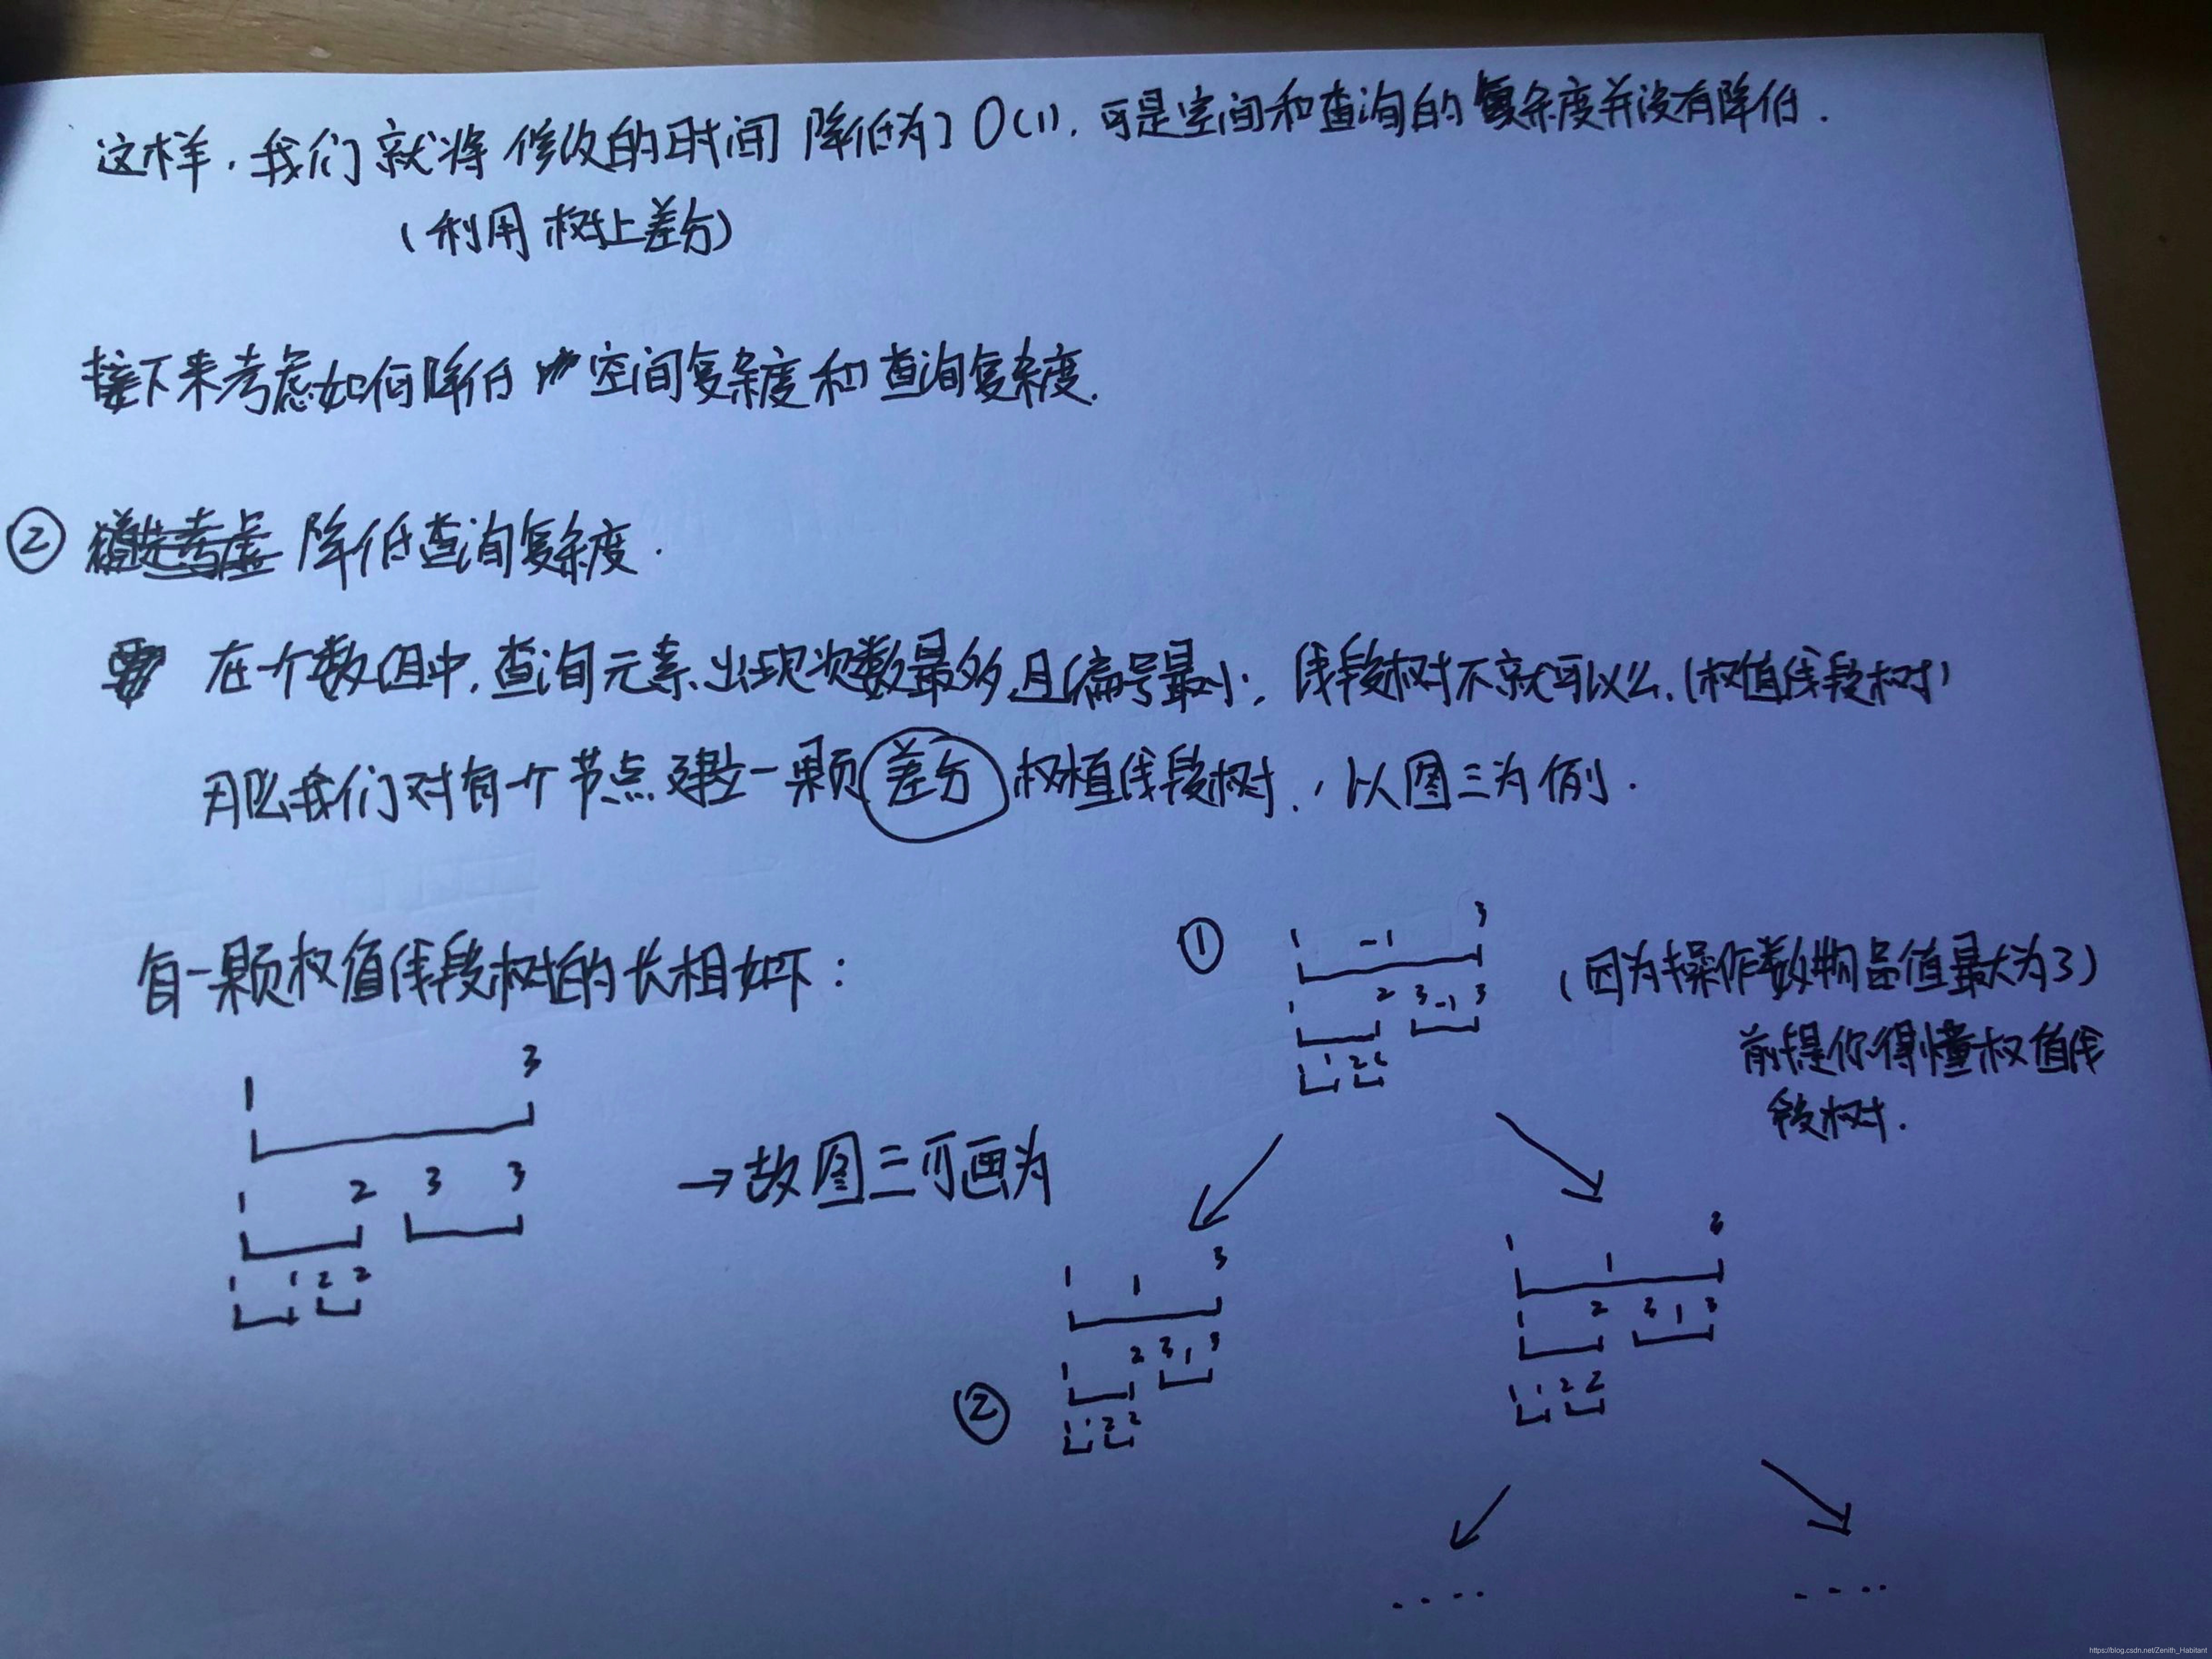 这样，我们就将修改的时间降低为了O(1)，可是空间和查询的复杂度并没有降低．
（利用树上差分）
接下来考虑如何降低空间复杂度和查询复杂度．
② 降低查询复杂度．
在一个数组中，查询元素出现次数最多且编号最小，线段树不就可以么．（权值线段树）
那么我们对每个节点建立一颗差分权植线段树．，以图三为例．
每一颗权值线段树的长相如下：
1 3
1 2 3 3
1 1 2 2
→故图三可画为
①
1 -1 3
1 2 3 -1 3
1 2 2
（因为操作数物品值最大为3）
前提你得懂权值线
段树．
②
1 1 3
1 2 3 1 3
1 1 2 2
1 1 3
1 2 3 1 3
1 1 2 2
....
....
https://blog.csdn.net/Zenith_Habitant